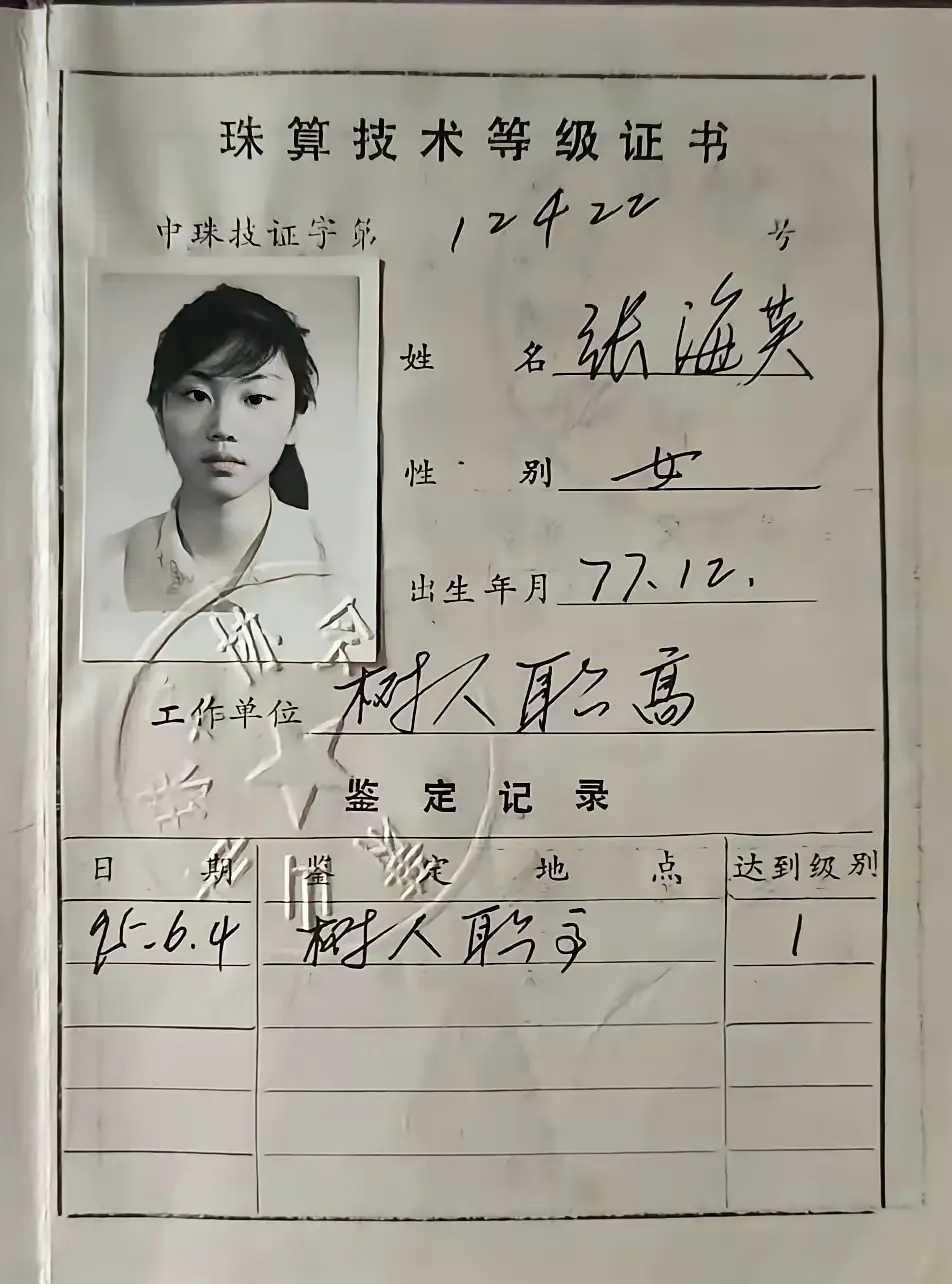 珠算技术等级证书
中珠技证字第 12422 号
姓 名 张海英
性 别 女
出生年月 77.12.
工作单位 树人职高
鉴定记录
日 期 鉴 定 地 点 达到级别
95.6.4 树人职高 1